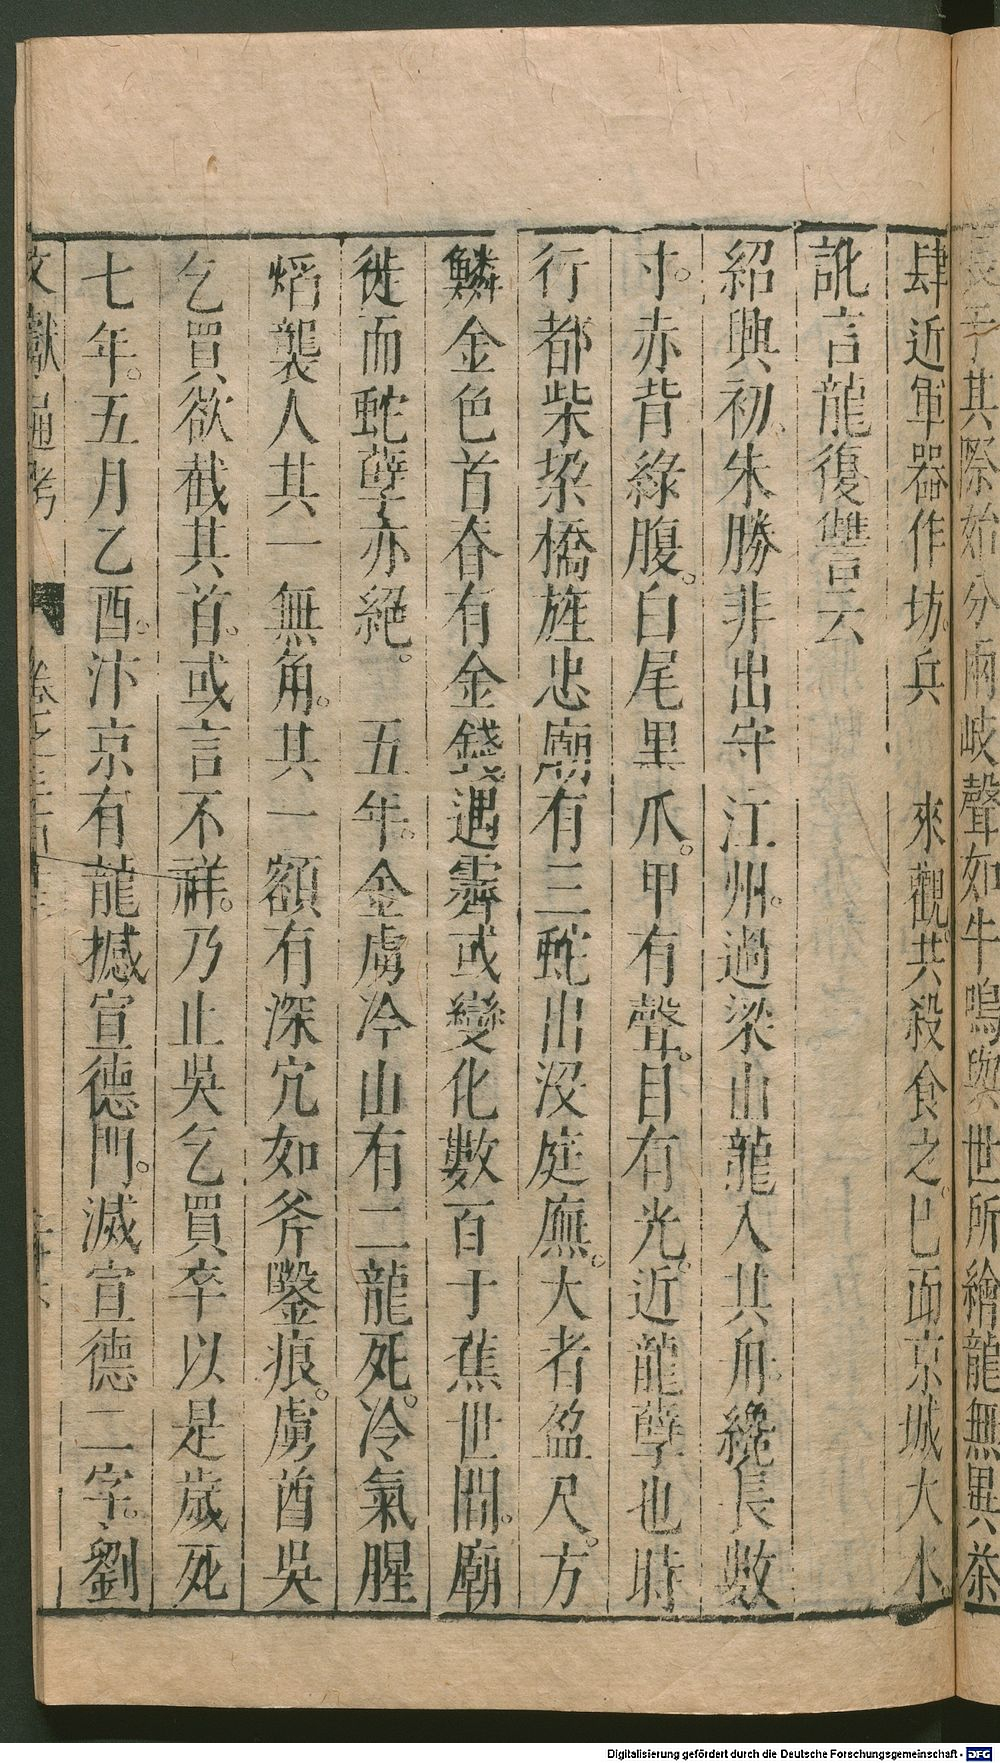 長于其際始分兩岐聲如牛鳴與世所繪龍無異茶
肆近軍器作坊。兵 來觀。共殺食之。巳而京城大水。
訛言龍復讐云
紹興初。朱勝非出守 江州。過梁山龍入其舟。纔長數
寸。赤背綠腹。白尾黑爪。甲有聲。目有光。近龍孽也時
行都柴垜橋旌忠廟有三蛇出沒庭廡。大者盈尺。方
鱗金色首脊有金錢遇霽或變化數百于蕉世間。廟
徙而蛇孽亦絕。 五年。金虜冷山有二龍死。冷氣腥
熖襲人其一無角。其一額有深宂如斧鑿痕。虜酋吳
乞買欲截其首。或言不祥。乃止吳乞買卒以是歲死
七年。五月乙酉。汴京有龍撼宣德門。滅宣德二字。劉
文獻通考 卷之三百
Digitalisierung gefördert durch die Deutsche Forschungsgemeinschaft - DFG